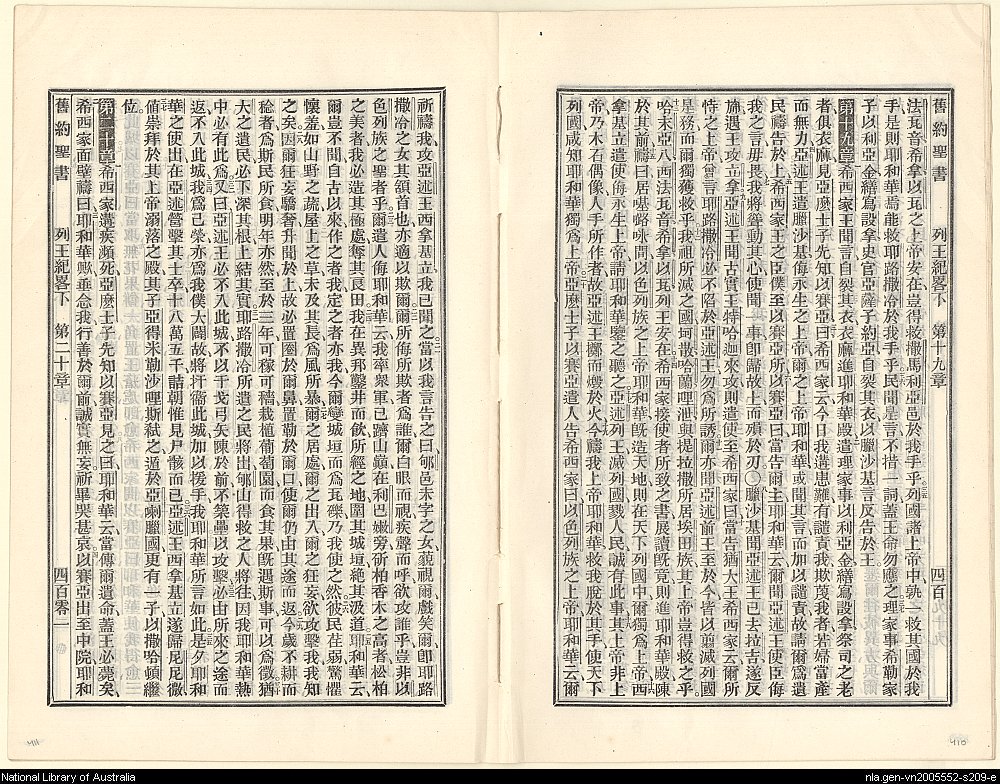 舊約聖書 列王紀畧下 第十九章 四百
法瓦音希拿以瓦之上帝安在豈得救撒馬利亞邑於我手乎列國諸上帝中孰一救其國於我
手是則耶和華焉能救耶路撒冷於我手乎民間是言不措一詞蓋王命勿應之理家事希勒家
子以利亞金繕寫設拿史官亞薩子約亞自裂其衣以臘沙基言反告於王
第十九章 希西家王聞言自裂其衣衣麻進耶和華殿遣理家事以利亞金繕寫設拿祭司之老
者俱衣麻見亞麼士子先知以賽亞曰希西家云今日我遘患難有譴責我欺蔑我者若婦當產
而無力亞述王遣臘沙基侮永生之上帝爾之上帝耶和華或聞其言而加以譴責故請爾為遺
民禱告於上希西家王之臣僕至以賽亞所以賽亞曰當告爾主耶和華云爾聞亞述王使臣侮
我之言毋畏我將聳動其心使聞一事卽歸故土而殞於刃〇臘沙基聞亞述王已去拉吉遂反
旆遇王攻立拿亞述王聞古實王特哈迦來攻則遣使至希西家曰當告猶大王希西家云爾所
恃之上帝曾言耶路撒冷必不陷於亞述王勿為所誘爾亦聞亞述前王至於今皆以翦滅列國
是務而爾獨獲救乎我祖所滅之國坷散哈蘭哩泄與提拉撒所居埃田族其上帝豈得救之乎
哈末亞八西法瓦音希拿以瓦列王安在希西家接使者所致之書展讀旣竟則進耶和華殿陳
於其前禱曰居𠼻𡀔咏間以色列族之上帝耶和華歟爾造天地則在天下列國中爾獨為上帝西
拿基立遣使侮永生上帝請耶和華鑒之聽之亞述列王滅列國戮人民誠有此事其上帝非上
帝乃木石偶像人手所作者故亞述王擲而燬於火今禱我上帝耶和華救我脫於其手使天下
列國咸知耶和華獨為上帝亞麼士子以賽亞遣人告希西家曰以色列族之上帝耶和華云爾
祈禱我攻亞述王西拿基立我已聞之當以我言告之曰郇邑未字之女藐視爾戲笑爾卽耶路
撒冷之女其頷首也亦適以欺爾爾所侮所欺者為誰爾白眼而視疾聲而呼欲攻誰乎豈非以
色列族之聖者乎爾遣人侮耶和華云我率衆軍已躋山巔在利巴嫩旁斫柏香木之高者松柏
之美者我必造其極處奪其艮田我在異邦鑿井而飲所經之地圍其城垣絶其汲道耶和華云
爾豈不聞自古以來作之者我定之者亦我今爾變城垣而為瓦礫乃我使之然彼民荏弱驚懼
懷羞如山野之蔬屋上之草未及其長為風所暴爾之居處爾之出入爾之狂妄欲攻擊我我知
之矣因爾狂妄驕奢升聞於上故必置圈於爾鼻置勒於爾口使爾仍由其途而返今歲不耕而
稔者為斯民所食明年亦然至於三年可稼可穡栽植葡萄園而食其果旣遇斯事可以為徵猶
大之遺民必下深其根上結其實耶路撒冷所遺之民將出郇山得救之人將往因我耶和華熱
中必有此為又曰亞述王必不入此城不以干戈弓矢陳於前不築壘以攻擊必由所來之途而
返不入此城我為己榮亦為我僕大闢故將扞衞此城加以援手我耶和華所言如此是夕耶和
華之使出在亞述營擊其士卒十八萬五千詰朝惟見尸骸而已亞述王西拿基立遂歸尼尼微
値崇拜於其上帝溺落之殿其子亞得米勒沙哩斯弒之遁於亞喇臘國更有一子以撒哈頓繼
位
第二十章 希西家遘疾頻死亞麼士子先知以賽亞見之曰耶和華云當傳爾遺命蓋王必薨矣
希西家面壁禱曰耶和華歟垂念我行善於爾前誠實無妄祈畢哭甚哀以賽亞出至中院耶和
舊約聖書 列王紀畧下 第二十章 四百零一
411
410
National Library of Australia
nla.gen-vn2005552-s209-e